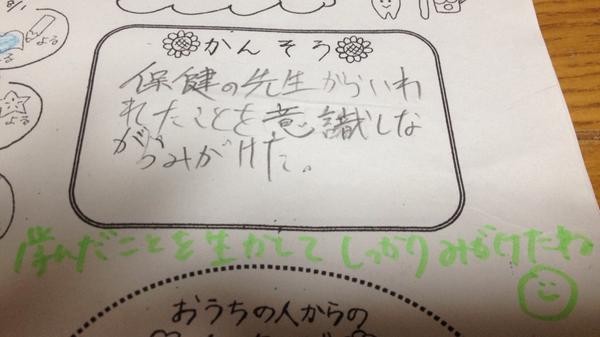 8/1
よる
よる
かんそう
保健の先生からいわ
れたことを意識しな
がらみがけた。
学んだことを生かして しっかりみがけたね
おうちの人からの